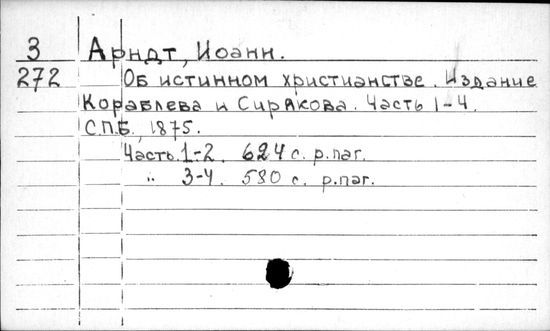 3 Арндт, Иоанн.
272 Об истинном христианстве. Издание
Кораблева и Сирякова. Часть 1-4.
С.П.Б., 1875.
Часть.1-2. 624 с. р.паг.
" 3-4. 580 с. р.паг.